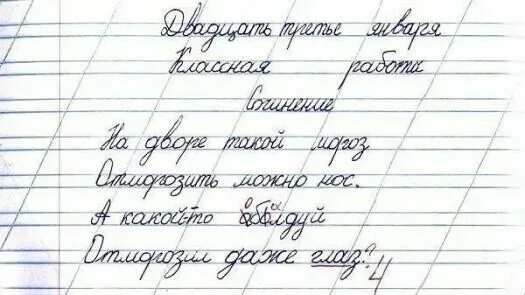 Двадцать третье января
Классная работа
Сочинение
На дворе такой мороз
Отморозить можно нос.
А какой-то аболдуй
Отморозил даже глаз? 4